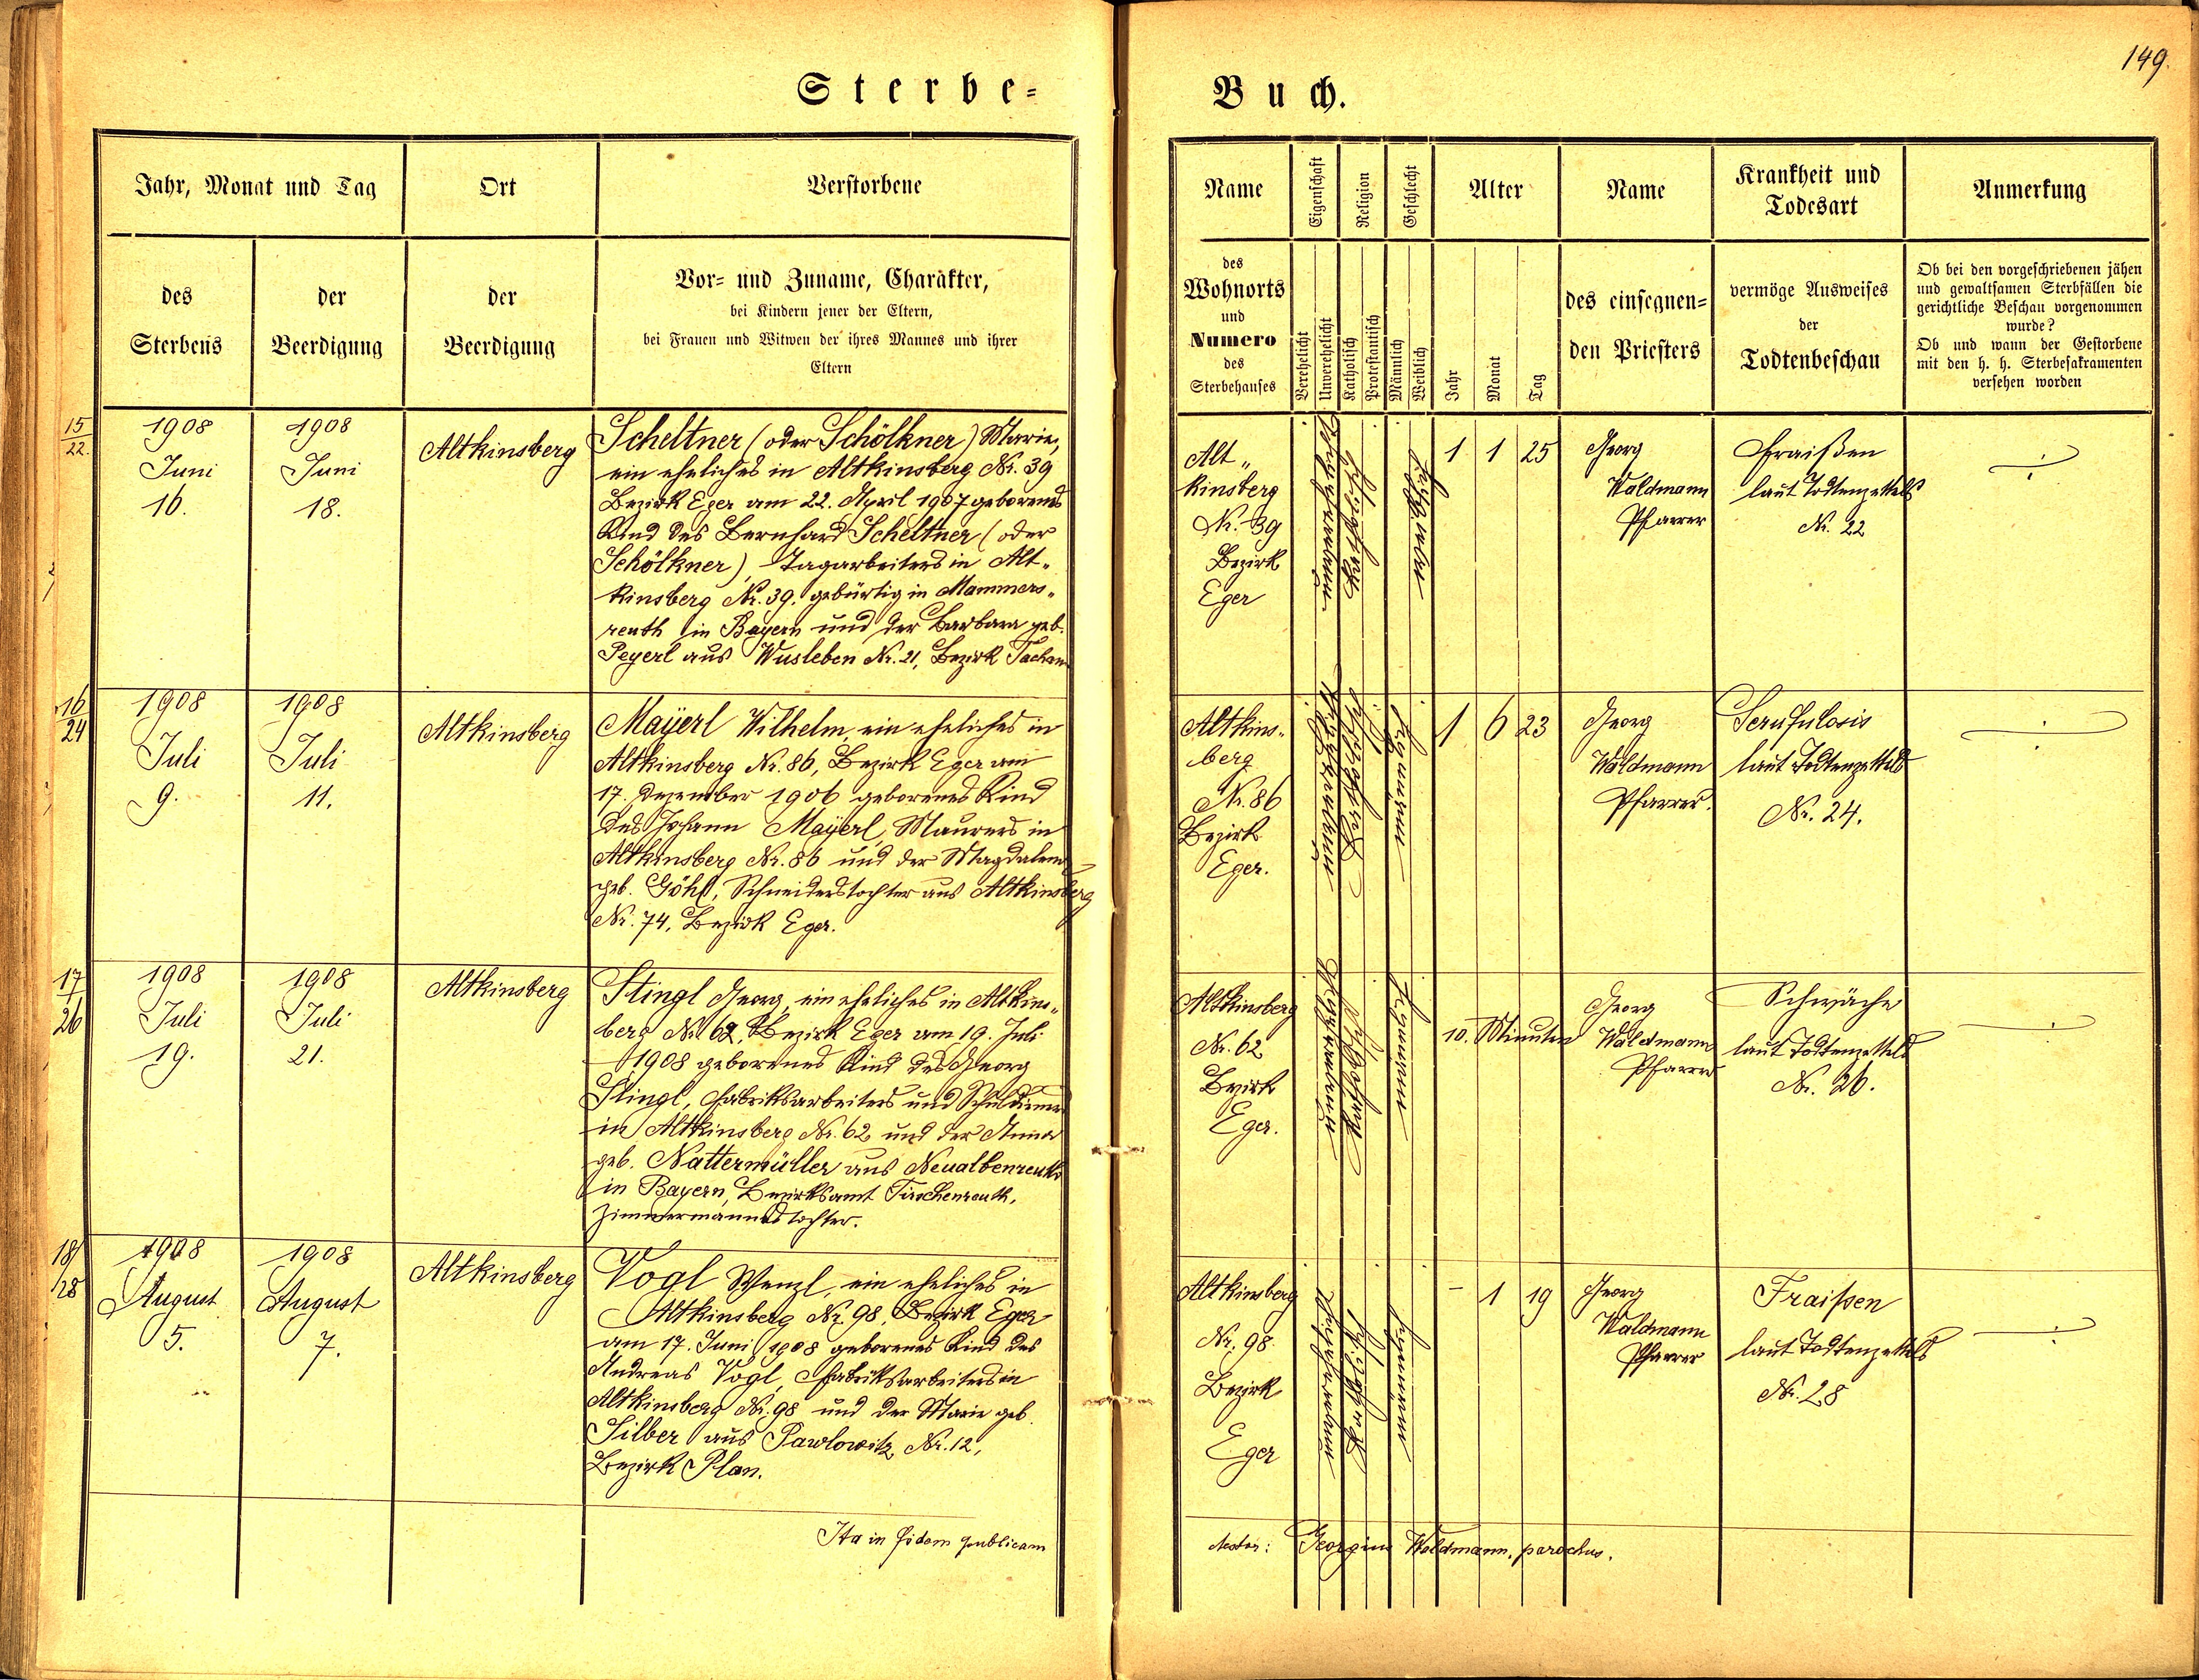 149.
Sterbe=
Buch.
Jahr, Monat und Tag
Ort
Verstorbene
des
Sterbens
der
Beerdigung
der
Beerdigung
Vor= und Zuname, Charakter,
bei Kindern jener der Eltern,
bei Frauen und Witwen der ihres Mannes und ihrer
Eltern
Name
Eigenschaft
Religion
Geschlecht
Alter
Name
Krankheit und
Todesart
Anmerkung
des
Wohnorts
und
Numero
des
Sterbehauses
Verehelicht
Unverehelicht
Katholisch
Protestantisch
Männlich
Weiblich
Jahr
Monat
Tag
des einsegnen=
den Priesters
vermöge Ausweises
der
Todtenbeschau
Ob bei den vorgeschriebenen jähen
und gewaltsamen Sterbfällen die
gerichtliche Beschau vorgenommen
wurde?
Ob und wann der Gestorbene
mit den h. h. Sterbesakramenten
versehen worden
15
22.
1908
Juni
16.
1908
Juni
18.
Altkinsberg
Scheltner (oder Schölkner) Marie,
ein eheliches in Altkinsberg Nr. 39
Bezirk Eger am 22. April 1907 geborenes
Kind des Bernhard Scheltner (oder
Schölkner), Tagarbeiters in Alt„
kinsberg Nr. 39, gebürtig in Mammers„
reuth in Bayern und der Barbara geb.
Peyerl aus Wusleben Nr. 21, Bezirk Tachau
Alt„
kinsberg
Nr. 39
Bezirk
Eger
1 1 25
Georg
Waldmann
Pfarrer
Fraißen
laut Todtenzettels
Nr. 22
16
24
1908
Juli
9.
1908
Juli
11.
Altkinsberg
Mayerl Wilhelm, ein eheliches in
Altkinsberg Nr. 86, Bezirk Eger am
17. Dezember 1906 geborenes Kind
des Johann Mayerl, Maurers in
Altkinsberg Nr. 86 und der Magdalena
geb. Göhl, Schneiderstochter aus Altkinsberg
Nr. 74, Bezirk Eger.
Altkins„
berg
Nr. 86
Bezirk
Eger.
1 6 23
Georg
Waldmann
Pfarrer.
Scrufulosis
laut Todtenzettels
Nr. 24.
17
26
1908
Juli
19.
1908
Juli
21.
Altkinsberg
Stingl Georg, ein eheliches in Altkins„
berg Nr. 62, Bezirk Eger am 19. Juli
1908 geborenes Kind des Georg
Stingl, Fabriksarbeiters und Schuldieners
in Altkinsberg Nr. 62 und der Anna
geb. Nattermüller aus Neualbenreuth
in Bayern, Bezirksamt Tirschenreuth,
Zimmermannstochter.
Altkinsberg
Nr. 62
Bezirk
Eger.
10. Minuten
Georg
Waldmann
Pfarrer
Schwäche
laut Todtenzettels
Nr. 26.
18
28
1908
August
5.
1908
August
7.
Altkinsberg
Vogl Wenzl, ein eheliches in
Altkinsberg Nr. 98, Bezirk Eger
am 17. Juni 1908 geborenes Kind des
Andreas Vogl, Fabriksarbeiters in
Altkinsberg Nr. 98 und der Marie geb.
Silber aus Pawlowitz Nr. 12,
Bezirk Plan.
Altkinsberg
Nr. 98
Bezirk
Eger
- 1 19
Georg
Waldmann
Pfarrer
Fraißen
laut Todtenzettels
Nr. 28
Ita in fidem publicam
Georgius Waldmann, parochus.